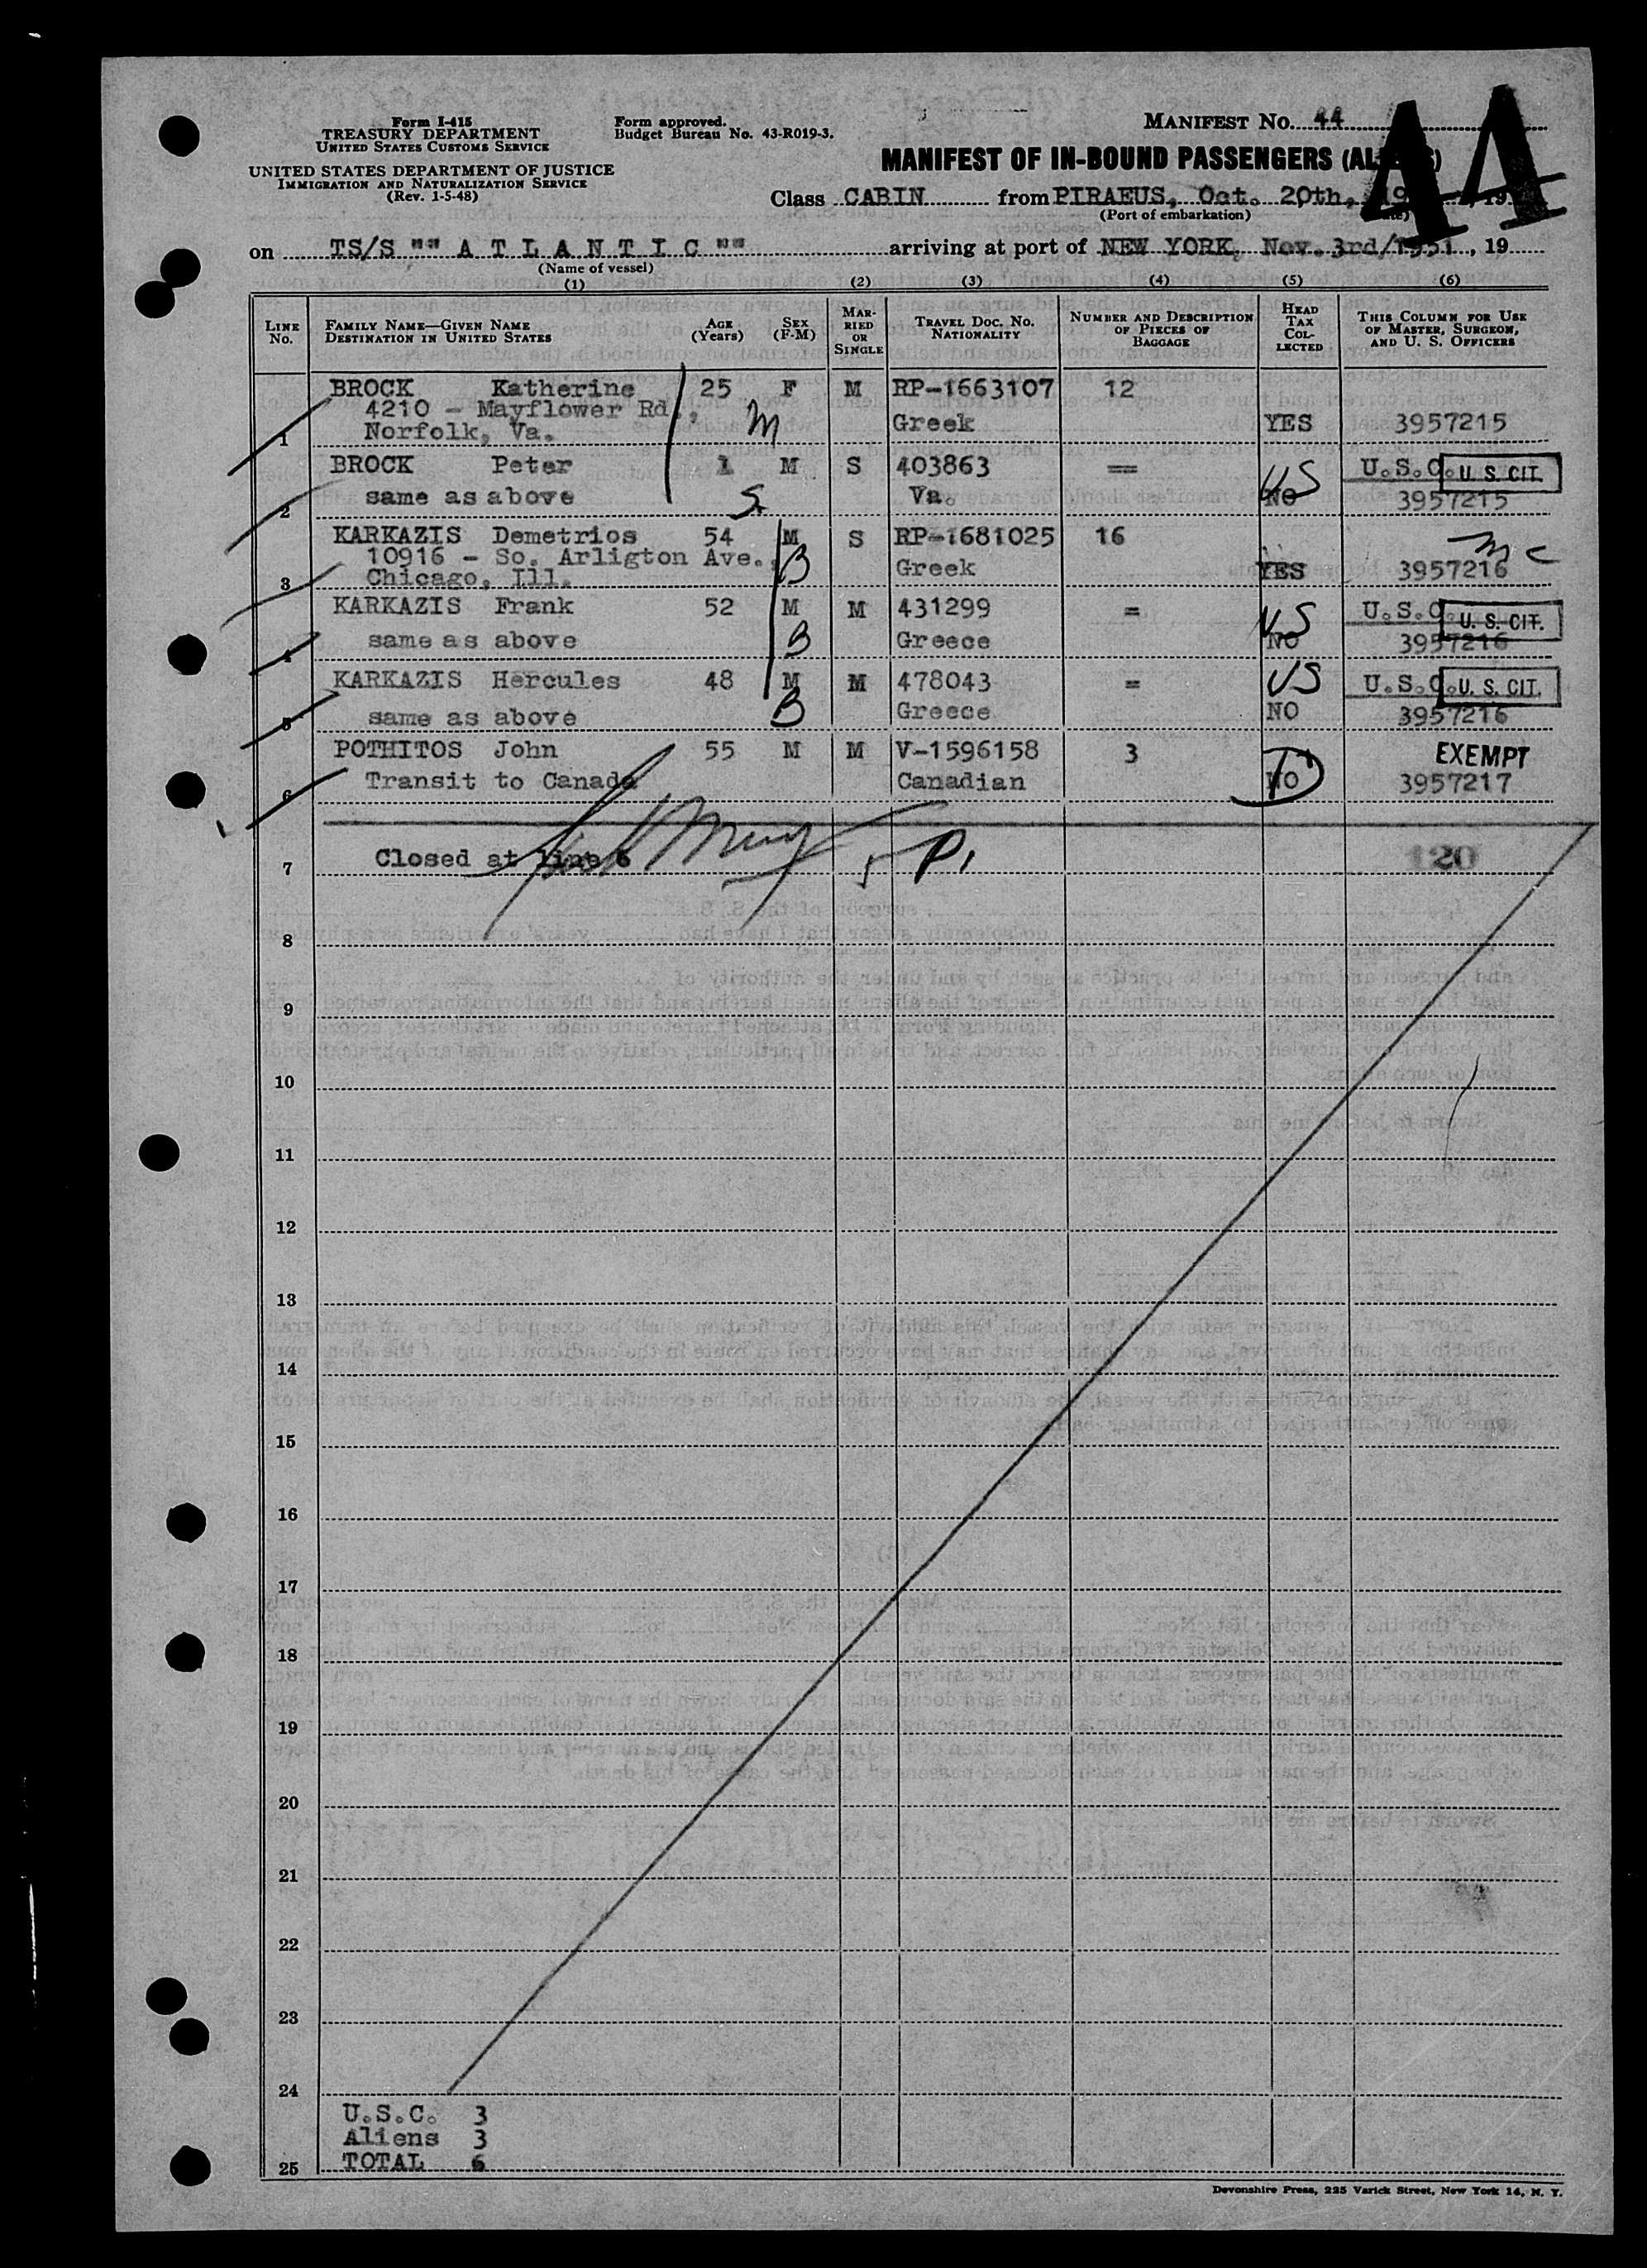 Form I-415
TREASURY DEPARTMENT
UNITED STATES CUSTOMS SERVICE
UNITED STATES DEPARTMENT OF JUSTICE
IMMIGRATION AND NATURALIZATION SERVICE
(Rev. 1-5-48)
Form approved.
Budget Bureau No. 43-R019-3.
MANIFEST NO. 44
44
MANIFEST OF IN-BOUND PASSENGERS
Class CABIN from PIRAEUS, Oct. 20th, 19
(Port of embarkation)
on TS/S "" A T L A N T I C "" arriving at port of NEW YORK, Nov. 3rd/1951, 19
(Name of vessel)
(1) (2) (3) (4) (5) (6)
LINE No. FAMILY NAME—GIVEN NAME DESTINATION IN UNITED STATES AGE (Years) SEX (F-M) MARRIED OR SINGLE TRAVEL DOC. NO. NATIONALITY NUMBER AND DESCRIPTION OF PIECES OF BAGGAGE HEAD TAX COLLECTED THIS COLUMN FOR USE OF MASTER, SURGEON, AND U. S. OFFICERS
BROCK Katherine 25 F M RP-1663107 12
4210 - Mayflower Rd., M
1 Norfolk, Va. Greek YES 3957215
BROCK Peter 1 M S 403863 == U.S.C. U. S. CIT.
2 same as above S Va. US NO 3957215
KARKAZIS Demetrios 54 M S RP-1681025 16
10916 - So. Arligton Ave. B mc
3 Chicago, Ill. Greek YES 3957216
KARKAZIS Frank 52 M M 431299 = US U.S.C. U. S. CIT.
4 same as above B Greece NO 3957216
KARKAZIS Hercules 48 M M 478043 = US U.S.C. U. S. CIT.
5 same as above B Greece NO 3957216
POTHITOS John 55 M M V-1596158 3 EXEMPT
6 Transit to Canada Canadian NO 3957217
7 Closed at line 6 120
8
9
10
11
12
13
14
15
16
17
18
19
20
21
22
23
24
U.S.C. 3
Aliens 3
25 TOTAL 6
Devonshire Press, 225 Varick Street, New York 14, N. Y.